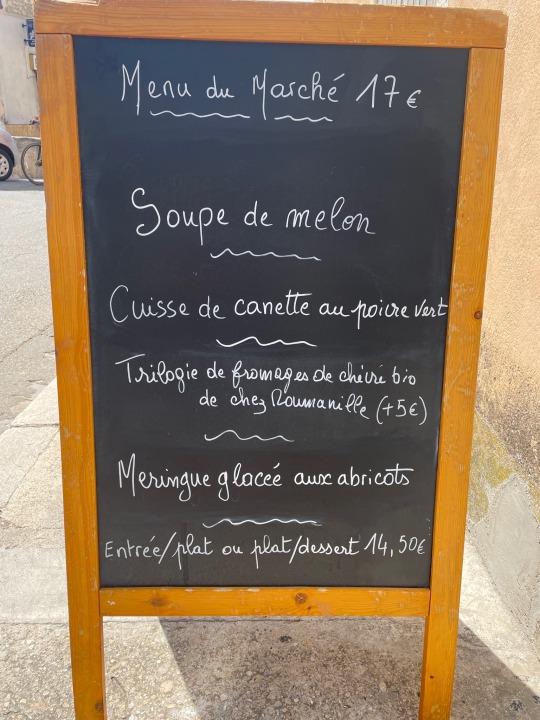 Menu du Marché 17€
Soupe de melon
Cuisse de canette au poivre vert
Trilogie de fromages de chèvre bio
de chez Roumanille (+5€)
Meringue glacée aux abricots
Entrée/plat ou plat/dessert 14,50€